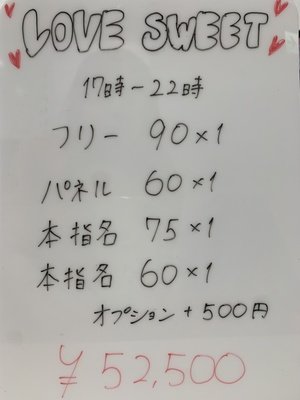 LOVE SWEET
17時-22時
フリー 90×1
パネル 60×1
本指名 75×1
本指名 60×1
オプション+500円
¥52,500